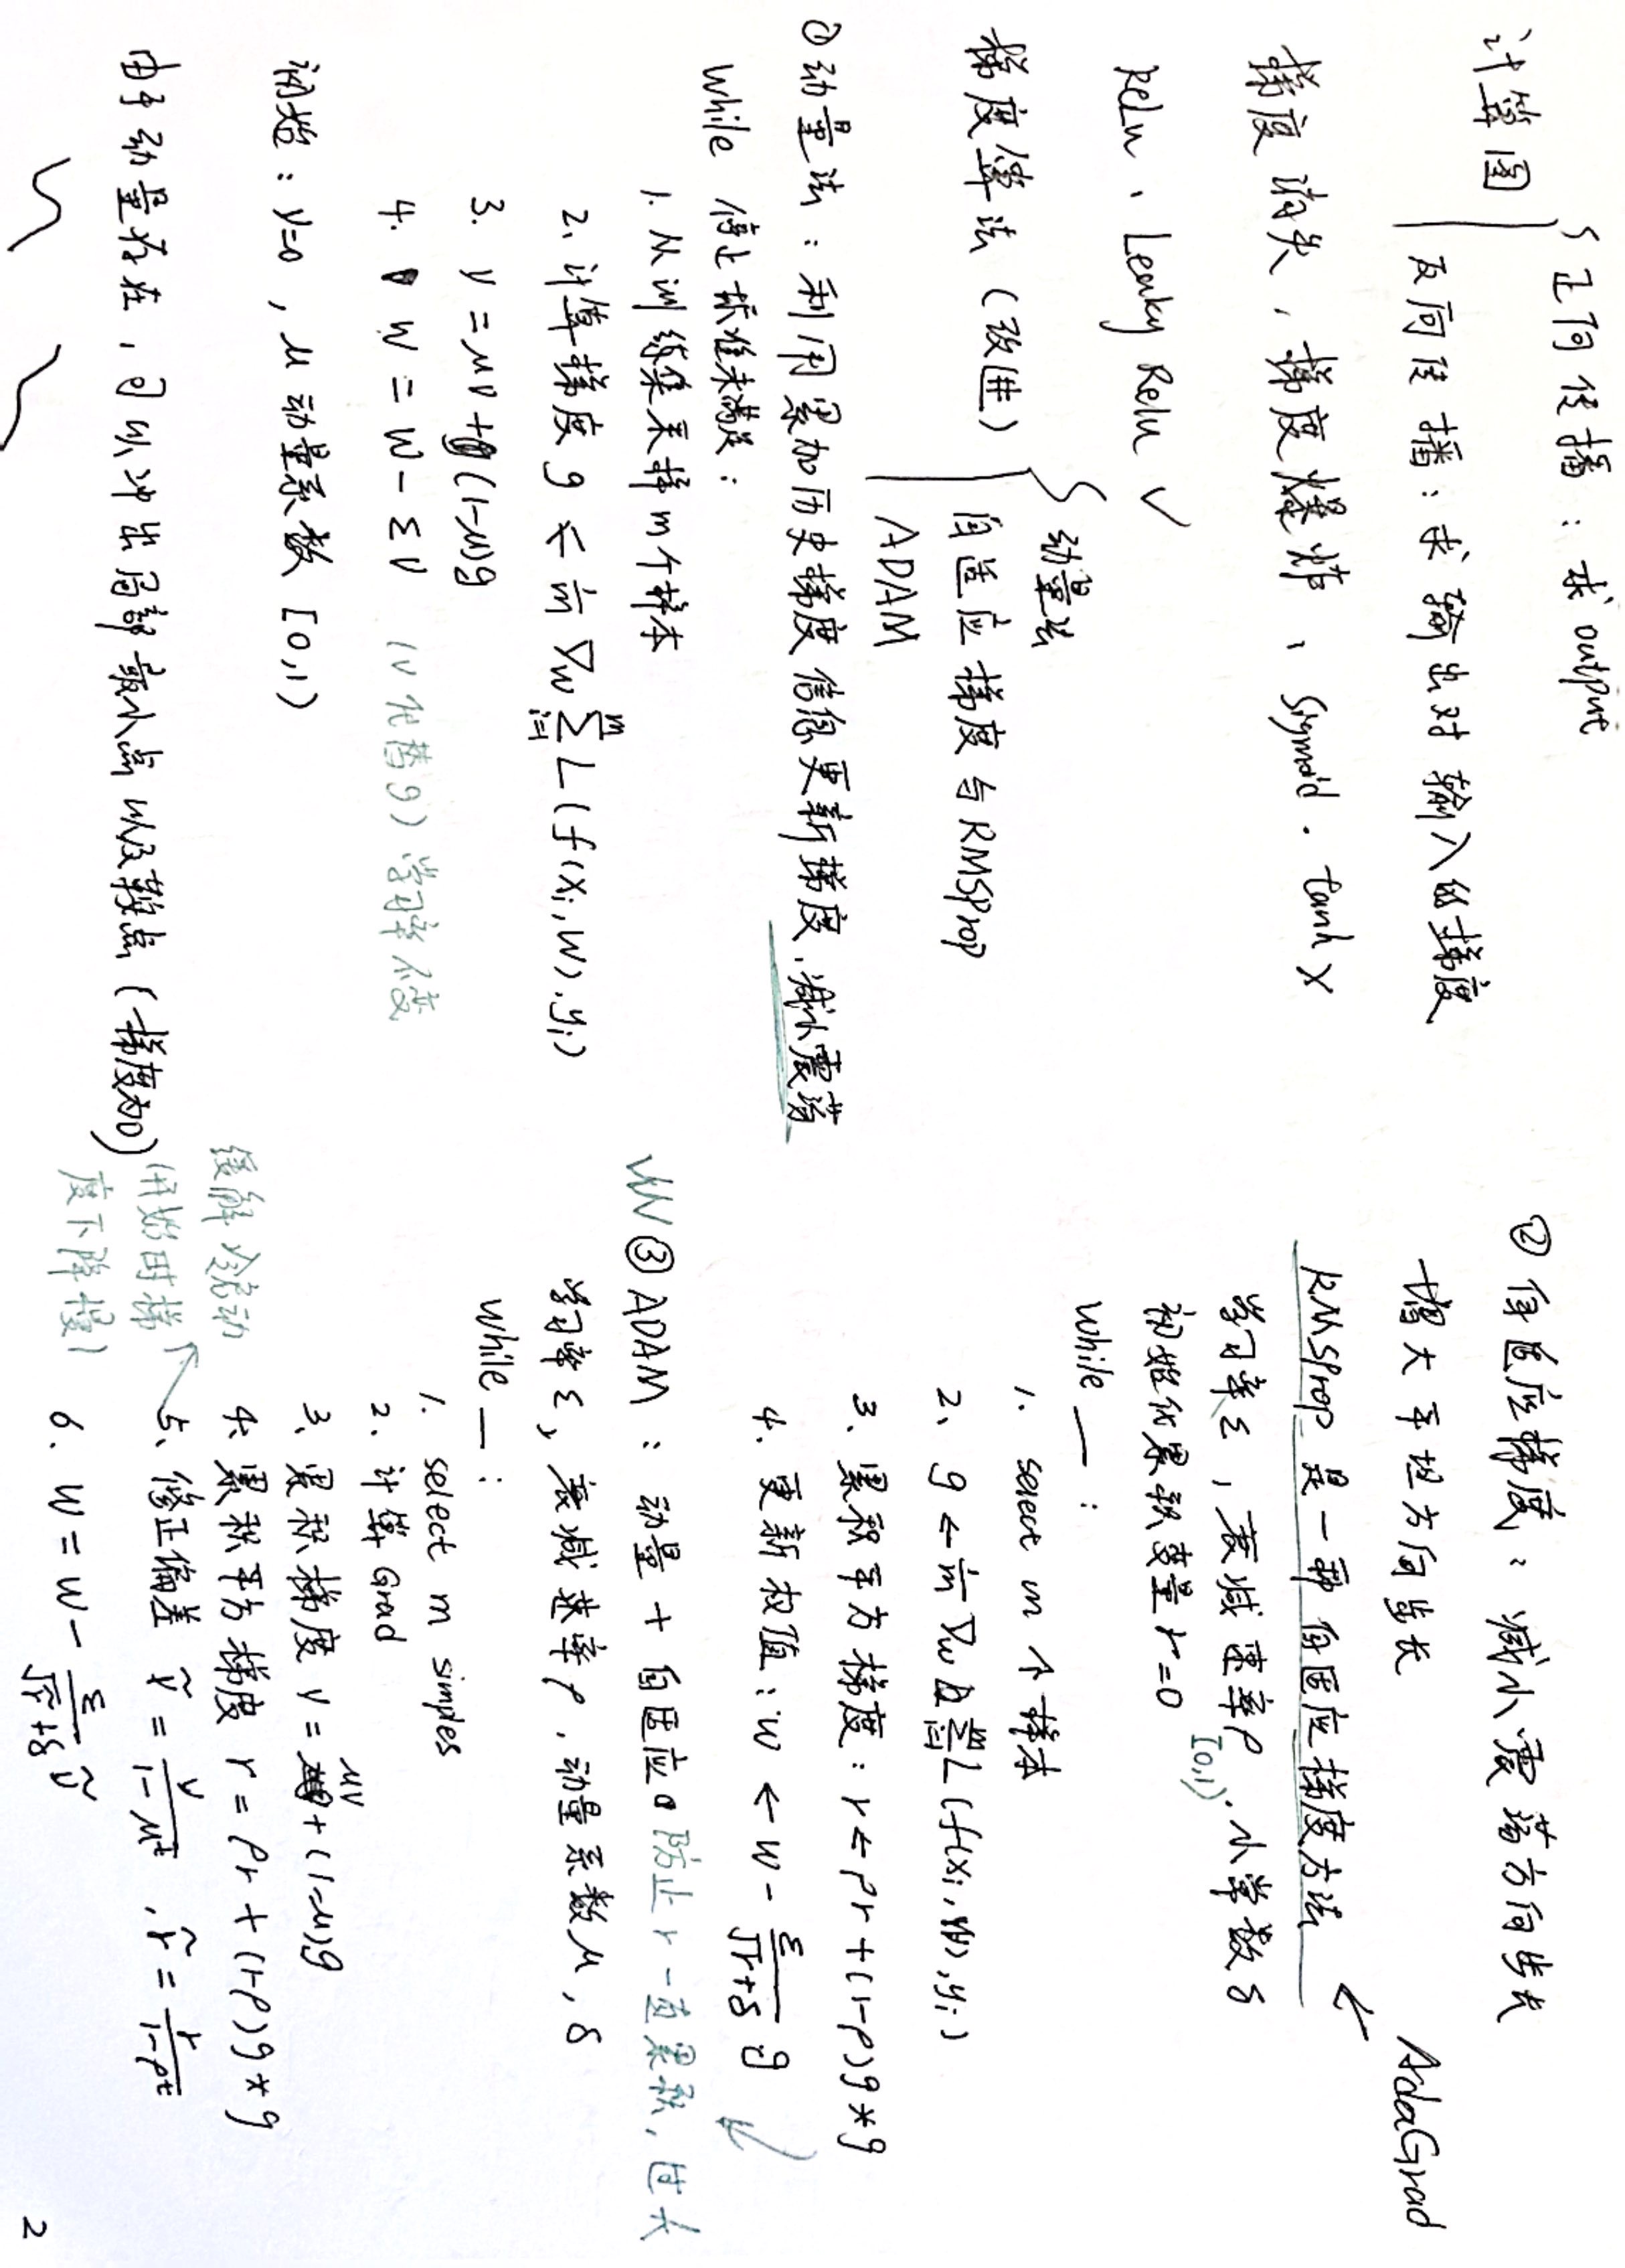 计算图
正向传播：求output
反向传播：求输出对输入的梯度
梯度消失，梯度爆炸，Sigmoid．tanh ×
ReLu、Leaky Relu ✓
梯度算法（改进）
动量法
自适应梯度与RMSProp
ADAM
①动量法：利用累加历史梯度信息更新梯度，减小震荡
while 停止标准未满足：
1. 从训练集采样m个样本
2、计算梯度 g ← 1/m ∇w Σ_{i=1}^{m} L(f(xi,W),yi)
3. V = μV + (1-μ)g
4. W = W - ΣV （V代替g）学习率不变
初始：V=0，μ 动量系数 [0,1)
由于动量存在，可以冲出局部最小点以及鞍点（梯度为0）
② 自适应梯度：减小震荡方向步长
增大平坦方向步长
AdaGrad
RMSProp 是一种自适应梯度方法
学习率Σ，衰减速率ρ，小常数δ
[0,1)
初始化累积变量r=0
while — ：
1. select m 个样本
2、g ← 1/m ∇w Σ_{i=1}^{m} L(f(xi,W),yi)
3、累积平方梯度：r ← ρr + (1-ρ)g*g
4. 更新权值：w ← w - Σ/(√r+δ) g
③ ADAM：动量 + 自适应 防止r一直累积，过大
学习率Σ，衰减速率ρ，动量系数μ，δ
while — ：
1. select m simples
2. 计算Grad
3、累积梯度 V = μV + (1-μ)g
4、累积平方梯度 r = ρr + (1-ρ)g*g
5、修正偏差 ṽ = V/(1-μ^t)，r̃ = r/(1-ρ^t)
缓解冷启动
（开始时梯
度下降慢）
6. W = W - Σ/(√r̃+δ) ṽ
2